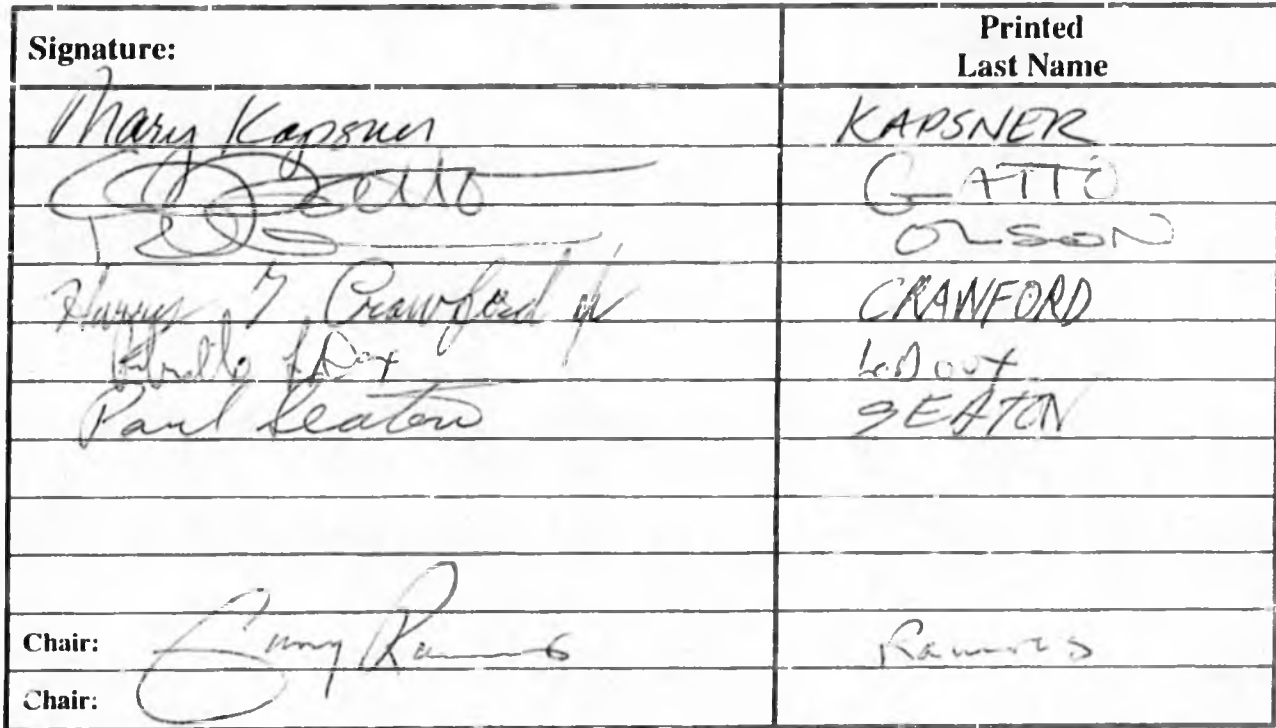 Signature: Printed Last Name
Mary Kapsner KAPSNER
Gatto GATTO
OLSON
Harry T Crawford Jr CRAWFORD
LeDoux
Paul Seaton SEATON
Chair: Ramras
Chair: